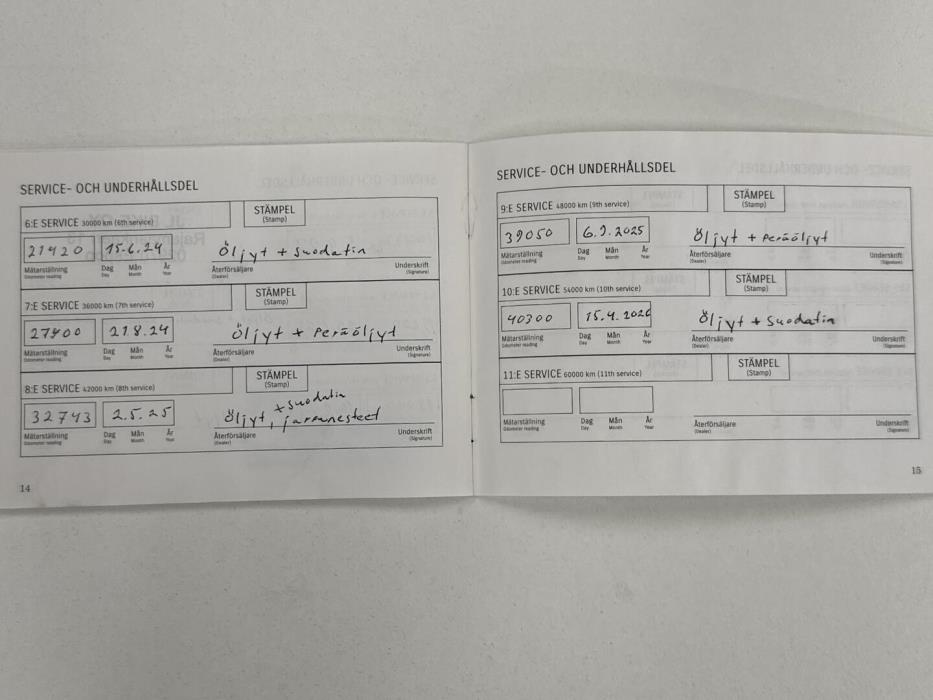 SERVICE- OCH UNDERHÅLLSDEL
6:E SERVICE 30000 km (6th service)
STÄMPEL
(Stamp)
21420 15.6.24 Öljyt + suodatin
Mätarställning Dag Mån År Återförsäljare Underskrift
Odometer reading Day Month Year (Dealer) (Signature)
7:E SERVICE 36000 km (7th service)
STÄMPEL
(Stamp)
27400 21 8.24 Öljyt + Peräöljyt
Mätarställning Dag Mån År Återförsäljare Underskrift
Odometer reading Day Month Year (Dealer) (Signature)
8:E SERVICE 42000 km (8th service)
STÄMPEL
(Stamp)
+ suodatin
32743 2.5.25 Öljyt, jarrunesteet
Mätarställning Dag Mån År Återförsäljare Underskrift
Odometer reading Day Month Year (Dealer) (Signature)
14
SERVICE- OCH UNDERHÅLLSDEL
9:E SERVICE 48000 km (9th service)
STÄMPEL
(Stamp)
39050 6.9.2025 Öljyt + Peräöljyt
Mätarställning Dag Mån År Återförsäljare Underskrift
Odometer reading Day Month Year (Dealer) (Signature)
10:E SERVICE 54000 km (10th service)
STÄMPEL
(Stamp)
40300 15.4.2026 Öljyt + Suodatin
Mätarställning Dag Mån År Återförsäljare Underskrift
Odometer reading Day Month Year (Dealer) (Signature)
11:E SERVICE 60000 km (11th service)
STÄMPEL
(Stamp)
Mätarställning Dag Mån År Återförsäljare Underskrift
Odometer reading Day Month Year (Dealer) (Signature)
15